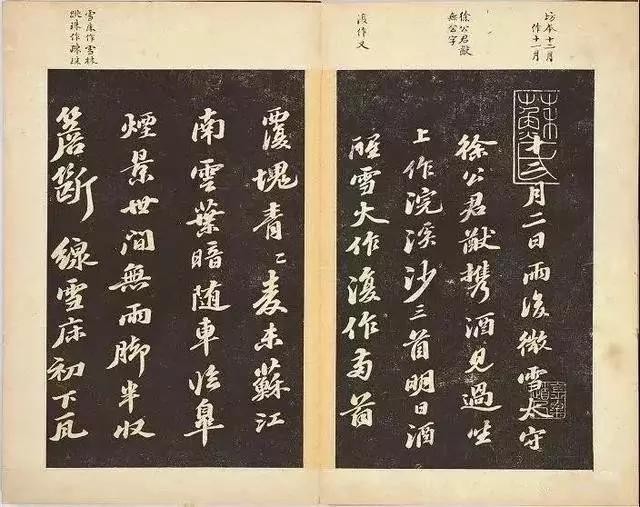 坊本十二月
作十一月
徐公君猷
無公字
復作又
雪床作雪林
跳珠作踈珠
十二月二日雨後微雪太守
徐公君猷携酒見過坐
上作浣溪沙三首明日酒
醒雪大作復作兩首
覆塊青〻麦未蘇江
南雲葉暗随車临皐
煙景世間無雨脚半収
簷斷線雪床初下瓦